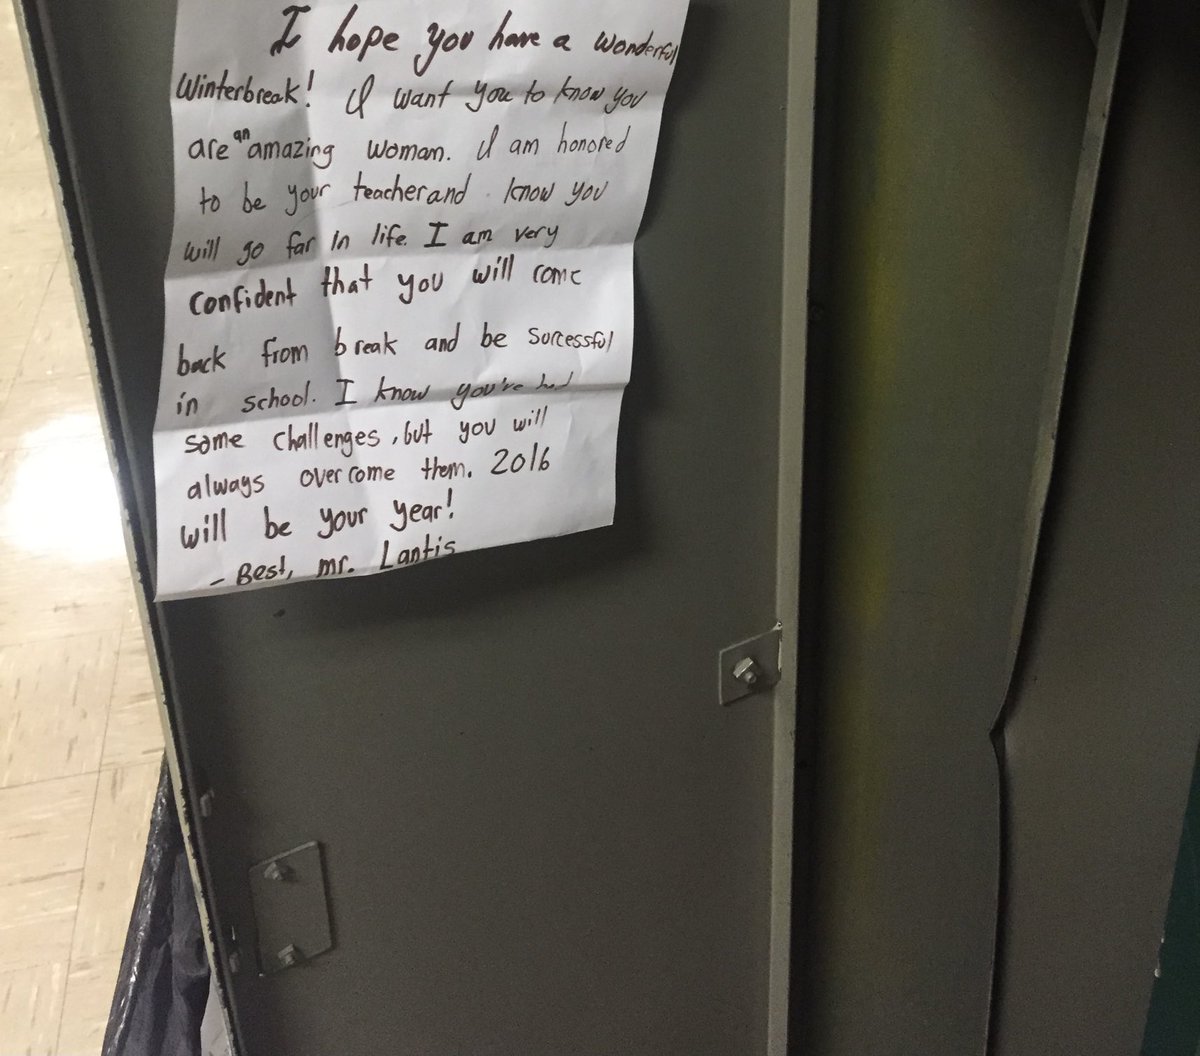 I hope you have a wonderful
Winterbreak! I want you to know you
are an amazing woman. I am honored
to be your teacher and know you
will go far in life. I am very
confident that you will come
back from break and be sorcessful
in school. I know you've had
some challenges, but you will
always overcome them. 2016
will be your year!
- Best, mr. Lantis